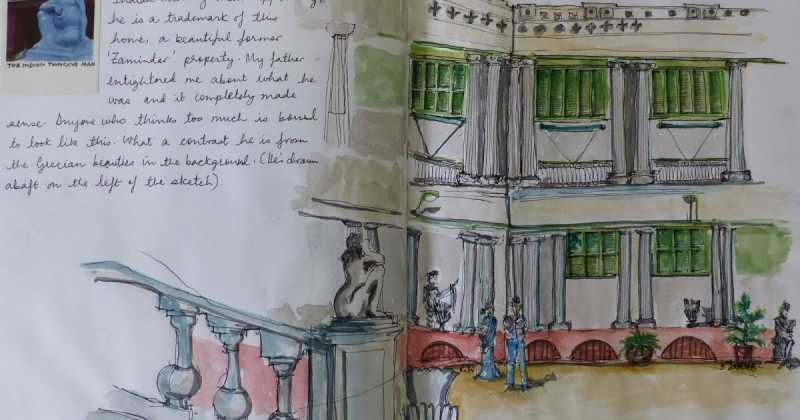 THE INDIAN THINKING MAN
he is a trademark of this
home, a beautiful former
'Zaminder' property. My father
enlightened me about what he
was and it completely made
sense. Anyone who thinks too much is bound
to look like this. What a contrast he is from
the Grecian beauties in the background. (He's drawn
abaft on the left of the sketch)